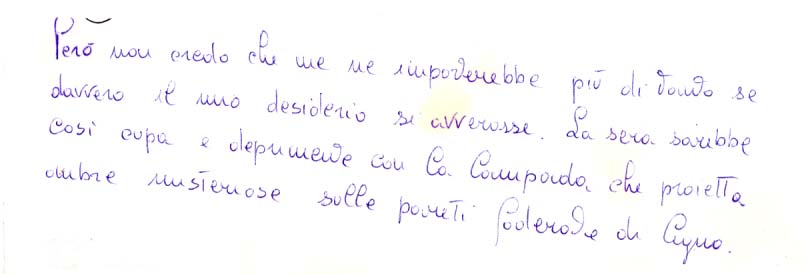 Però non credo che me ne importerebbe più di tanto se
davvero il mio desiderio si avverasse. La sera sarebbe
così cupa e deprimente con la lampada che proietta
ombre misteriose sulle pareti foderate di legno.